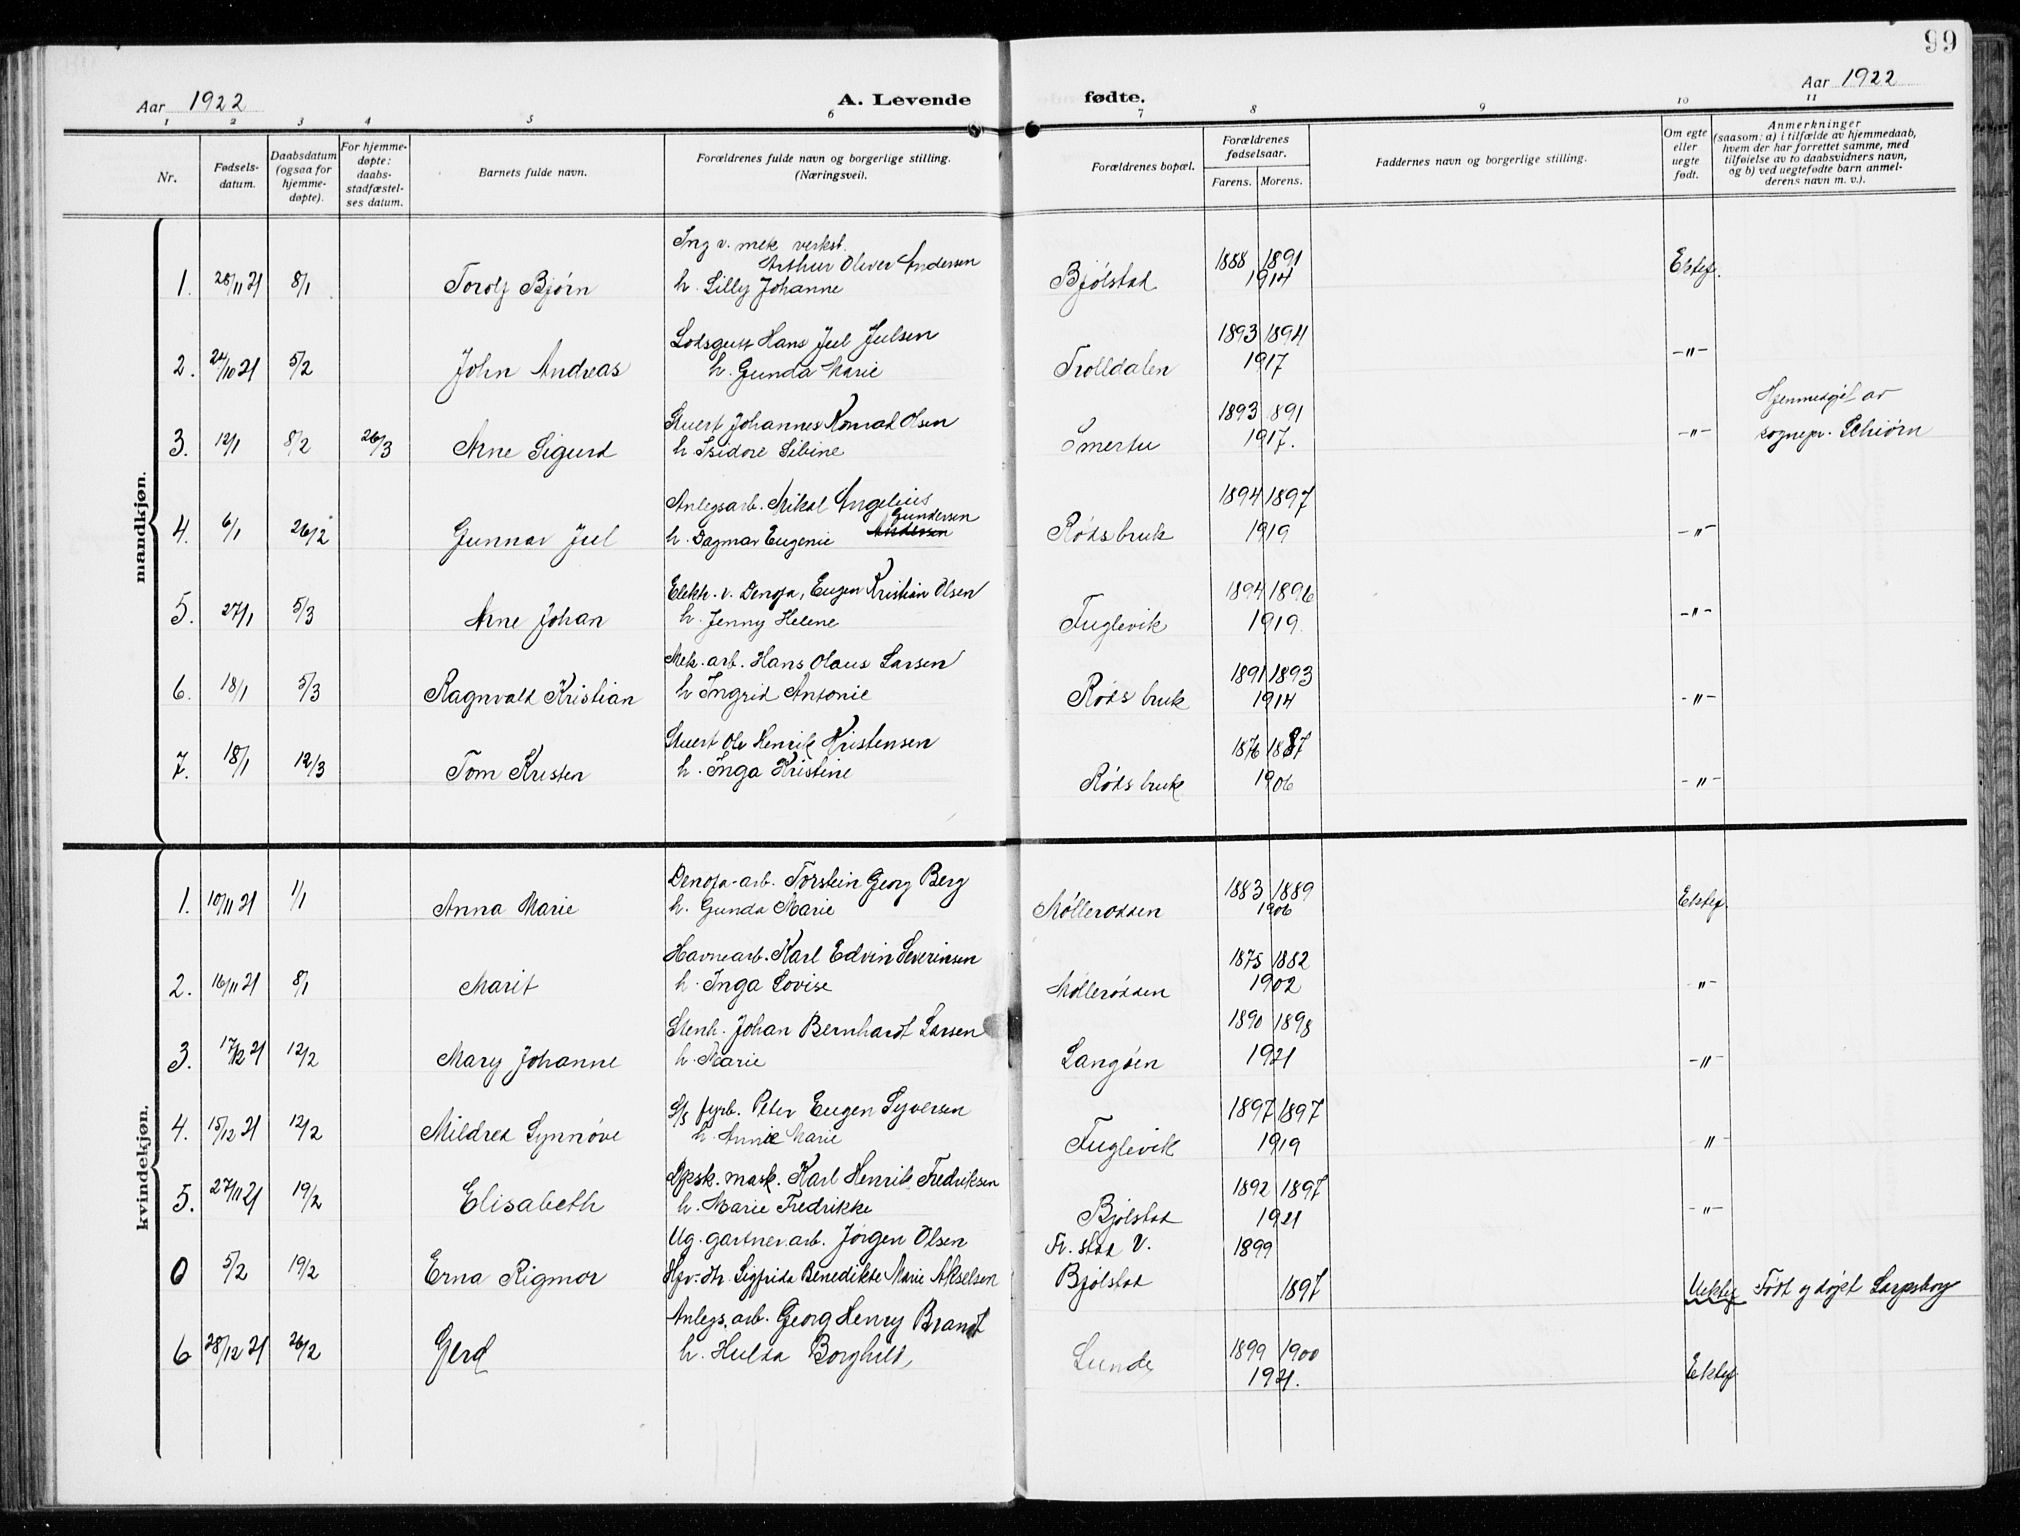 99
Aar 1922
A. Levende fødte.
Aar 1922
1 2 3 4 5 6 7 8 9 10 11
Nr.
Fødsels-
datum.
Daabsdatum
(ogsaa for
hjemme-
døpte).
For hjemme-
døpte:
daabs-
stadfæstel-
ses datum.
Barnets fulde navn.
Forældrenes fulde navn og borgerlige stilling.
(Næringsvei).
Forældrenes bopæl.
Forældrenes
fødselsaar.
Farens. Morens.
Faddernes navn og borgerlige stilling.
Om egte
eller
uegte
født.
Anmerkninger
(saasom: a) i tilfælde av hjemmedaab,
hvem der har forrettet samme, med
tilføielse av to daabsvidners navn,
og b) ved uegtefødte barn anmel-
derens navn m. v.).
mandkjøn.
Ing v. mek verkst.
Arthur Oliver Andersen 1888 1891
1. 28/11 21 8/1 Torolf Bjørn h. Lilly Johanne Bjølstad 1914 Ektef.
Lodsgutt Hans Juel Julsen 1893 1894
2. 24/10 21 5/2 John Andreas h. Gunda Marie Trolldalen 1917 -"-
Stuert Johannes Konrad Olsen 1893 891 Hjemmedøpt av
3. 12/1 8/2 26/3 Arne Sigurd h. Isidore Sibine Smertu 1917. -"- sognepr. Schiørn
Anlegsarb. Mikal Angelius 1894 1897
Gundersen
4. 6/1 26/2 Gunnar Juel h. Dagmar Eugenie Andersen Røds bruk 1919 -"-
Elekh. v. Denofa, Eugen Kristian Olsen 1894 1896
5. 27/1 5/3 Arne Johan h. Jenny Helene Fuglevik 1919. -"-
Mek. arb. Hans Olaus Larsen 1891 1893
6. 18/1 5/3 Ragnvald Kristian h Ingrid Antonie Røds bruk 1914 -"-
Stuert Olv Henrik Kristensen 1876 1887
7. 18/1 12/3 Tom Kristen h. Inga Kristine Røds bruk 1906 -"-
kvindekjøn.
Denofa-arb. Torstein Georg Berg 1883 1889
1. 10/11 21 1/1 Anna Marie h. Gunda Marie Møllerodden 1906 Ektef.
Havnearb. Karl Edvin Severinsen 1875 1882
2. 16/11 21 8/1 Marit h. Inga Lovise Møllerodden 1902 -"-
Stenh. Johan Bernhardt Larsen 1890 1898
3. 17/12 21 12/2 Mary Johanne h. Marie Langøen 1921 -"-
S/s fyrb. Peter Eugen Syversen 1897 1897
4. 15/12 21 12/2 Mildred Synnøve h. Annie Marie Fuglevik 1919 "
Dpsk. mask. Karl Henrik Fredriksen 1892 1897
5. 27/11 21 19/2 Elisabeth h. Marie Fredrikke Bjølstad 1921 -"-
Ug. gartnerarb. Jørgen Olsen Fr. stad V. 1899
0 5/2 19/2 Erna Rigmor Sigfrida Benedikte Marie Akselsen Bjølstad 1897 Uektef Født og døpt Sarpsborg
Anlegs. arb. Georg Henry Brandt
6 28/12 21 26/2 Gerd h. Hulda Borghild, Lunde 1899 1900
1921. Ektef.